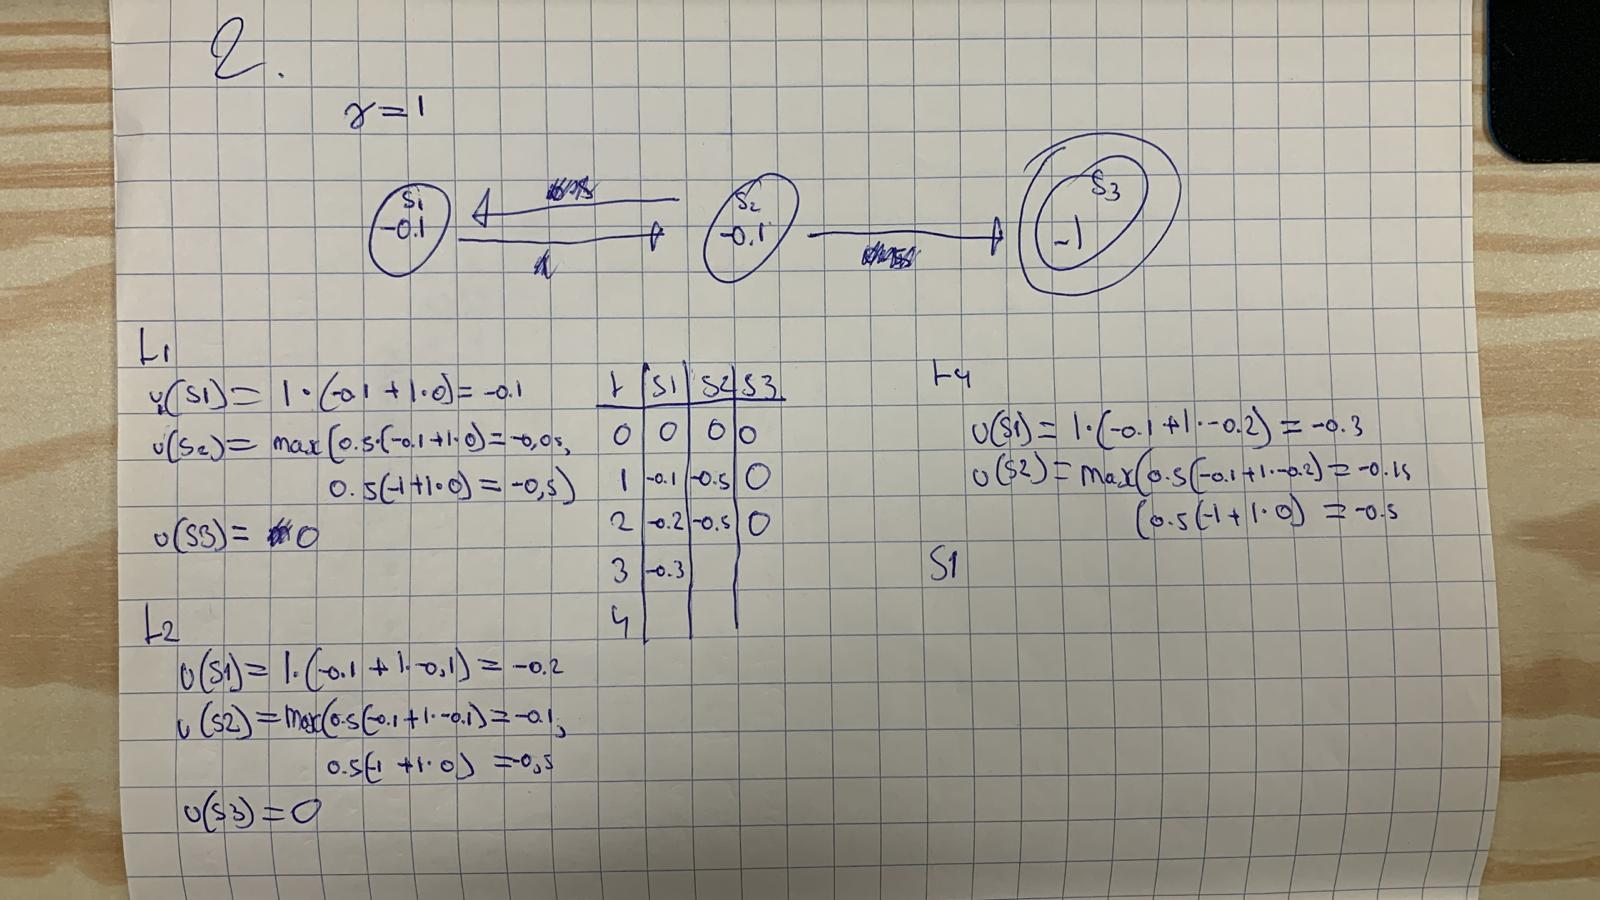 2.
γ=1
S1
-0.1
S2
-0.1
S3
-1
t1
v(S1) = 1·(-0.1 + 1·0) = -0.1
v(S2) = max(0.5·(-0.1+1·0) = -0,05,
0.5(-1+1·0) = -0,5)
v(S3) = 0
t2
v(S1) = 1·(-0.1 + 1·-0,1) = -0.2
v(S2) = max(0.5(-0.1+1·-0.1) = -0.1,
0.5(-1 +1·0) = -0,5
v(S3) = 0
t S1 S2 S3
0 0 0 0
1 -0.1 -0.5 0
2 -0.2 -0.5 0
3 -0.3
4
t4
v(S1) = 1·(-0.1+1·-0.2) = -0.3
v(S2) = max(0.5(-0.1+1·-0.2) = -0.15
(0.5(-1+1·0) = -0.5
S1